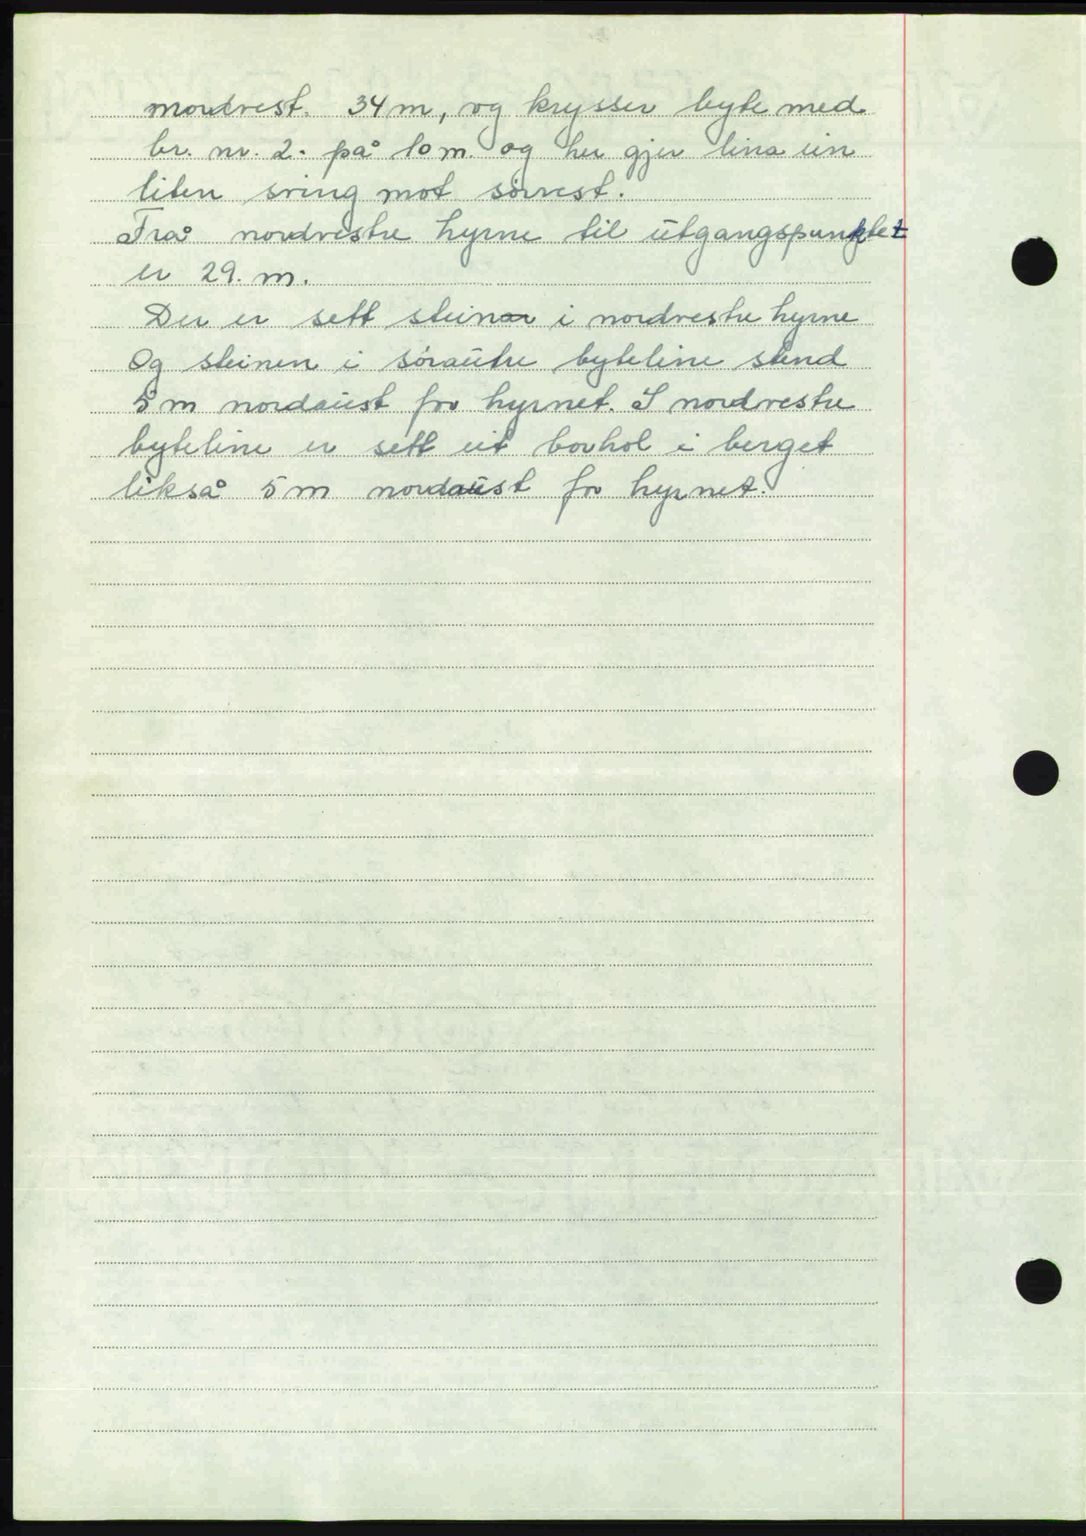 nordvest. 34 m, og krysser byte med
br. nr. 2. på 10 m. og her gjer lina ein
liten sving mot sørvest.
Frå nordvestre hyrne til utgangspunktet
er 29. m.
Der er sett steinar i nordvestre hyrne
Og steinen i søraustre byteline stend
5 m nordaust fro hyrnet. I nordvestre
byteline er sett eit borhol i berget
likså 5 m nordaust fro hyrnet.